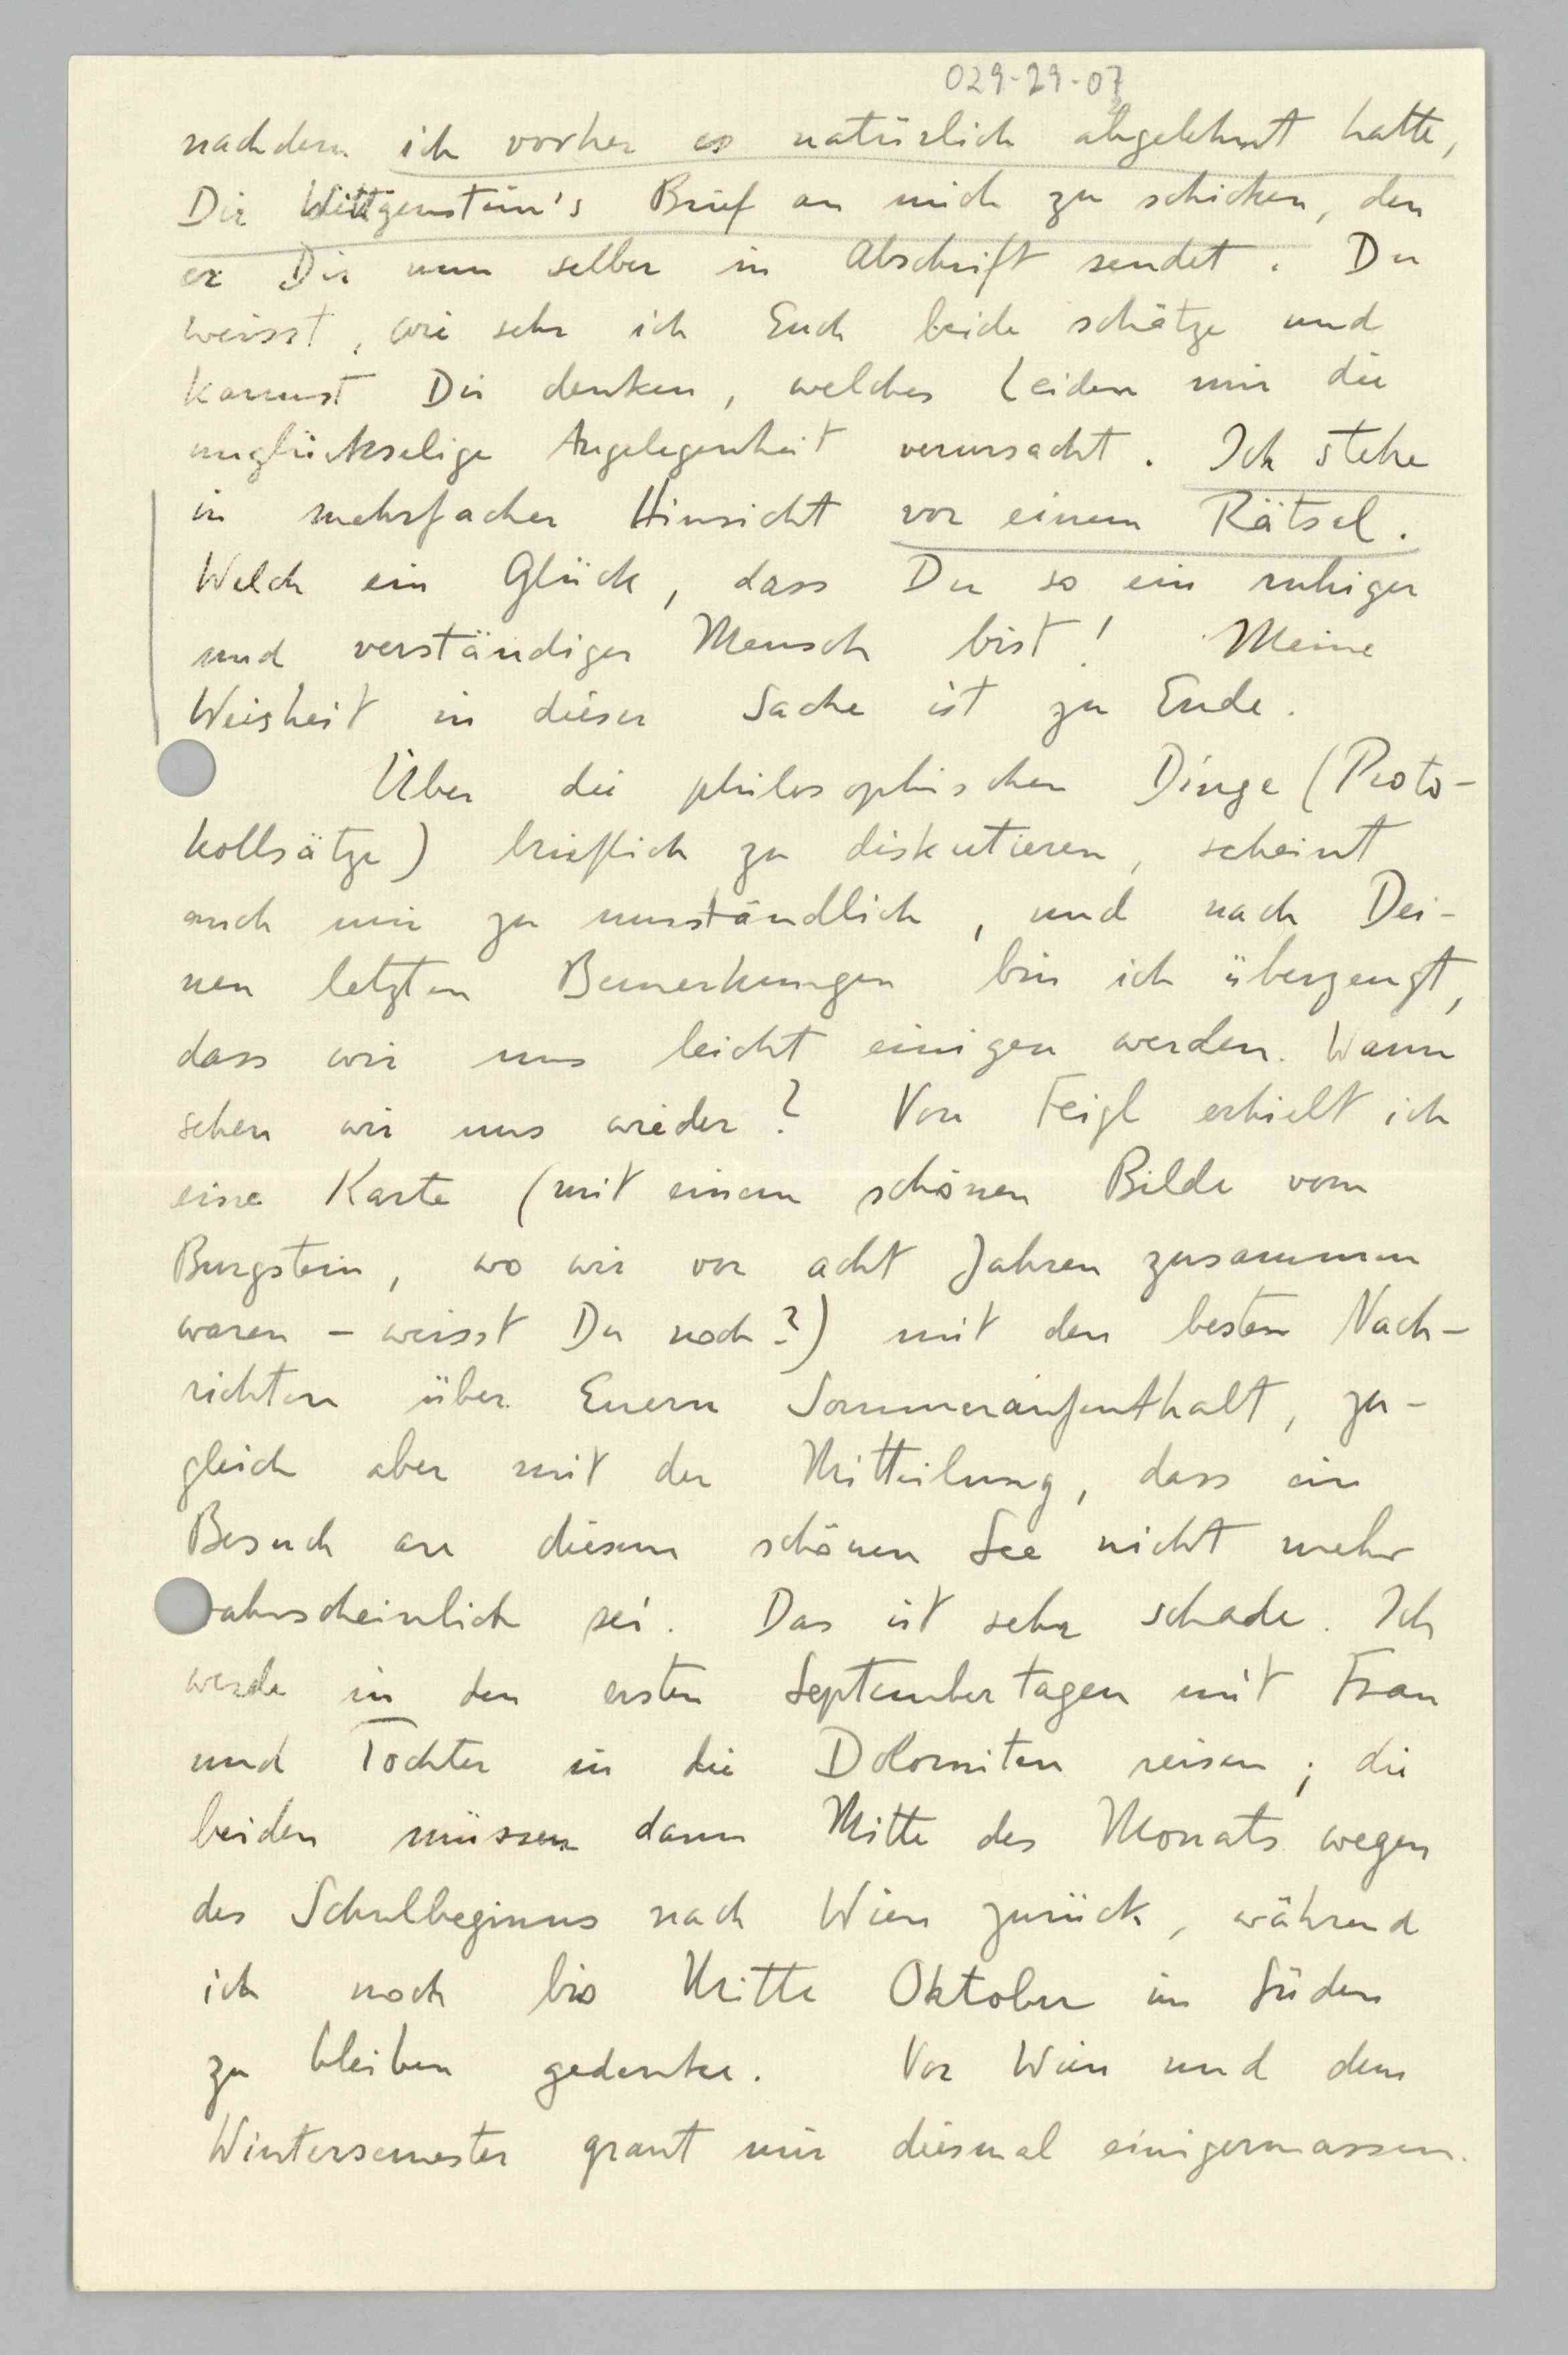 029-29-07
nachdem ich vorher es natürlich abgelehnt hatte,
Dir Wittgenstein's Brief an mich zu schicken, den
er Dir nun selber in Abschrift sendet. Du
weisst, wie sehr ich Euch beide schätze und
kannst Dir denken, welches Leiden mir die
unglückselige Angelegenheit verursacht. Ich stehe
in mehrfacher Hinsicht vor einem Rätsel.
Welch ein Glück, dass Du so ein ruhiger
und verständiger Mensch bist! Meine
Weisheit in dieser Sache ist zu Ende.
Über die philosophischen Dinge (Proto-
kollsätze) brieflich zu diskutieren, scheint
auch mir zu umständlich, und nach Dei-
nen letzten Bemerkungen bin ich überzeugt,
dass wir uns leicht einigen werden. Wann
sehen wir uns wieder? Von Feigl erhielt ich
eine Karte (mit einem schönen Bilde vom
Burgstein, wo wir vor acht Jahren zusammen
waren - weisst Du noch?) mit den besten Nach-
richten über Euern Sommeraufenthalt, zu-
gleich aber mit der Mitteilung, dass ein
Besuch an diesem schönen See nicht mehr
wahrscheinlich sei. Das ist sehr schade. Ich
werde in den ersten Septembertagen mit Frau
und Tochter in die Dolomiten reisen; die
beiden müssen dann Mitte des Monats wegen
des Schulbeginns nach Wien zurück, während
ich noch bis Mitte Oktober im Süden
zu bleiben gedenke. Vor Wien und dem
Wintersemester graut mir diesmal einigermassen.